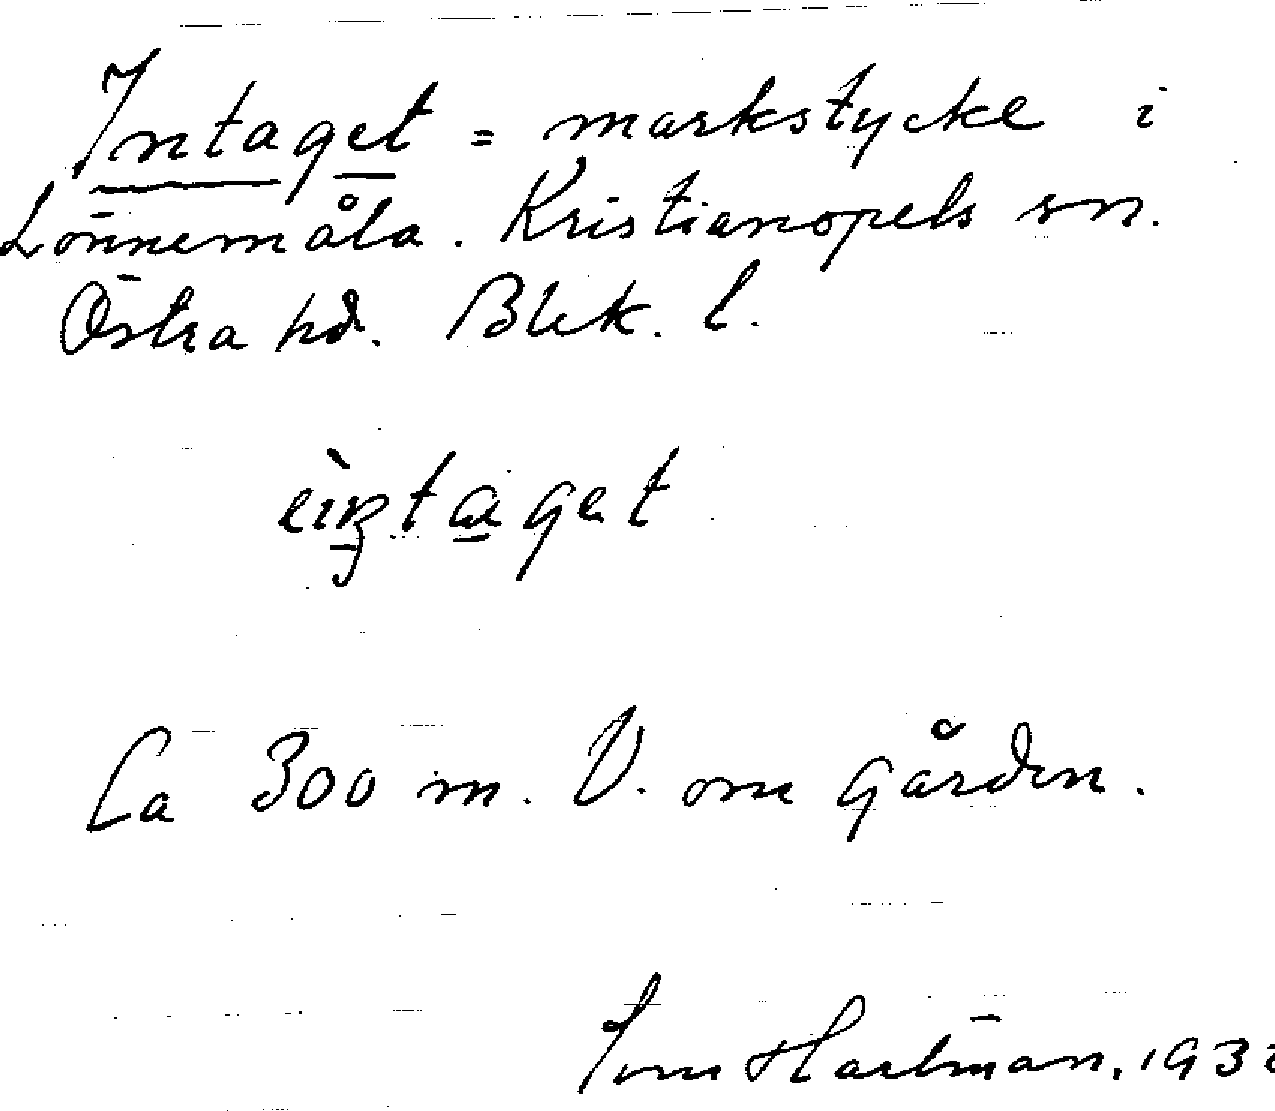 Intaget = markstycke i
Lönnemåla. Kristianopels sn.
Östra hd. Blek. l.
Ca 300 m. V. om gården.
Tom Hartman, 193